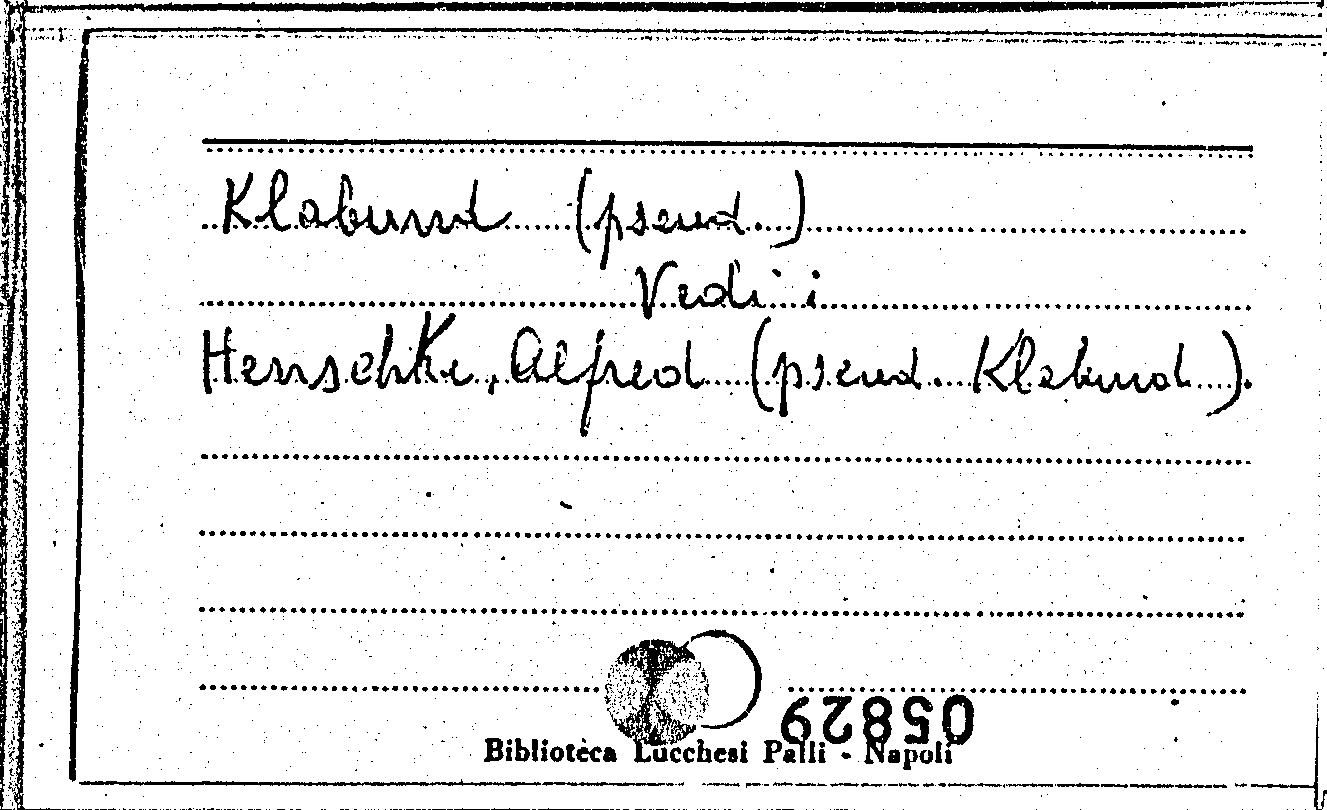 Klabund (pseud.)
Vedi :
Henschke, Alfred (pseud. Klabund).
05829
Biblioteca Lucchesi Palli - Napoli